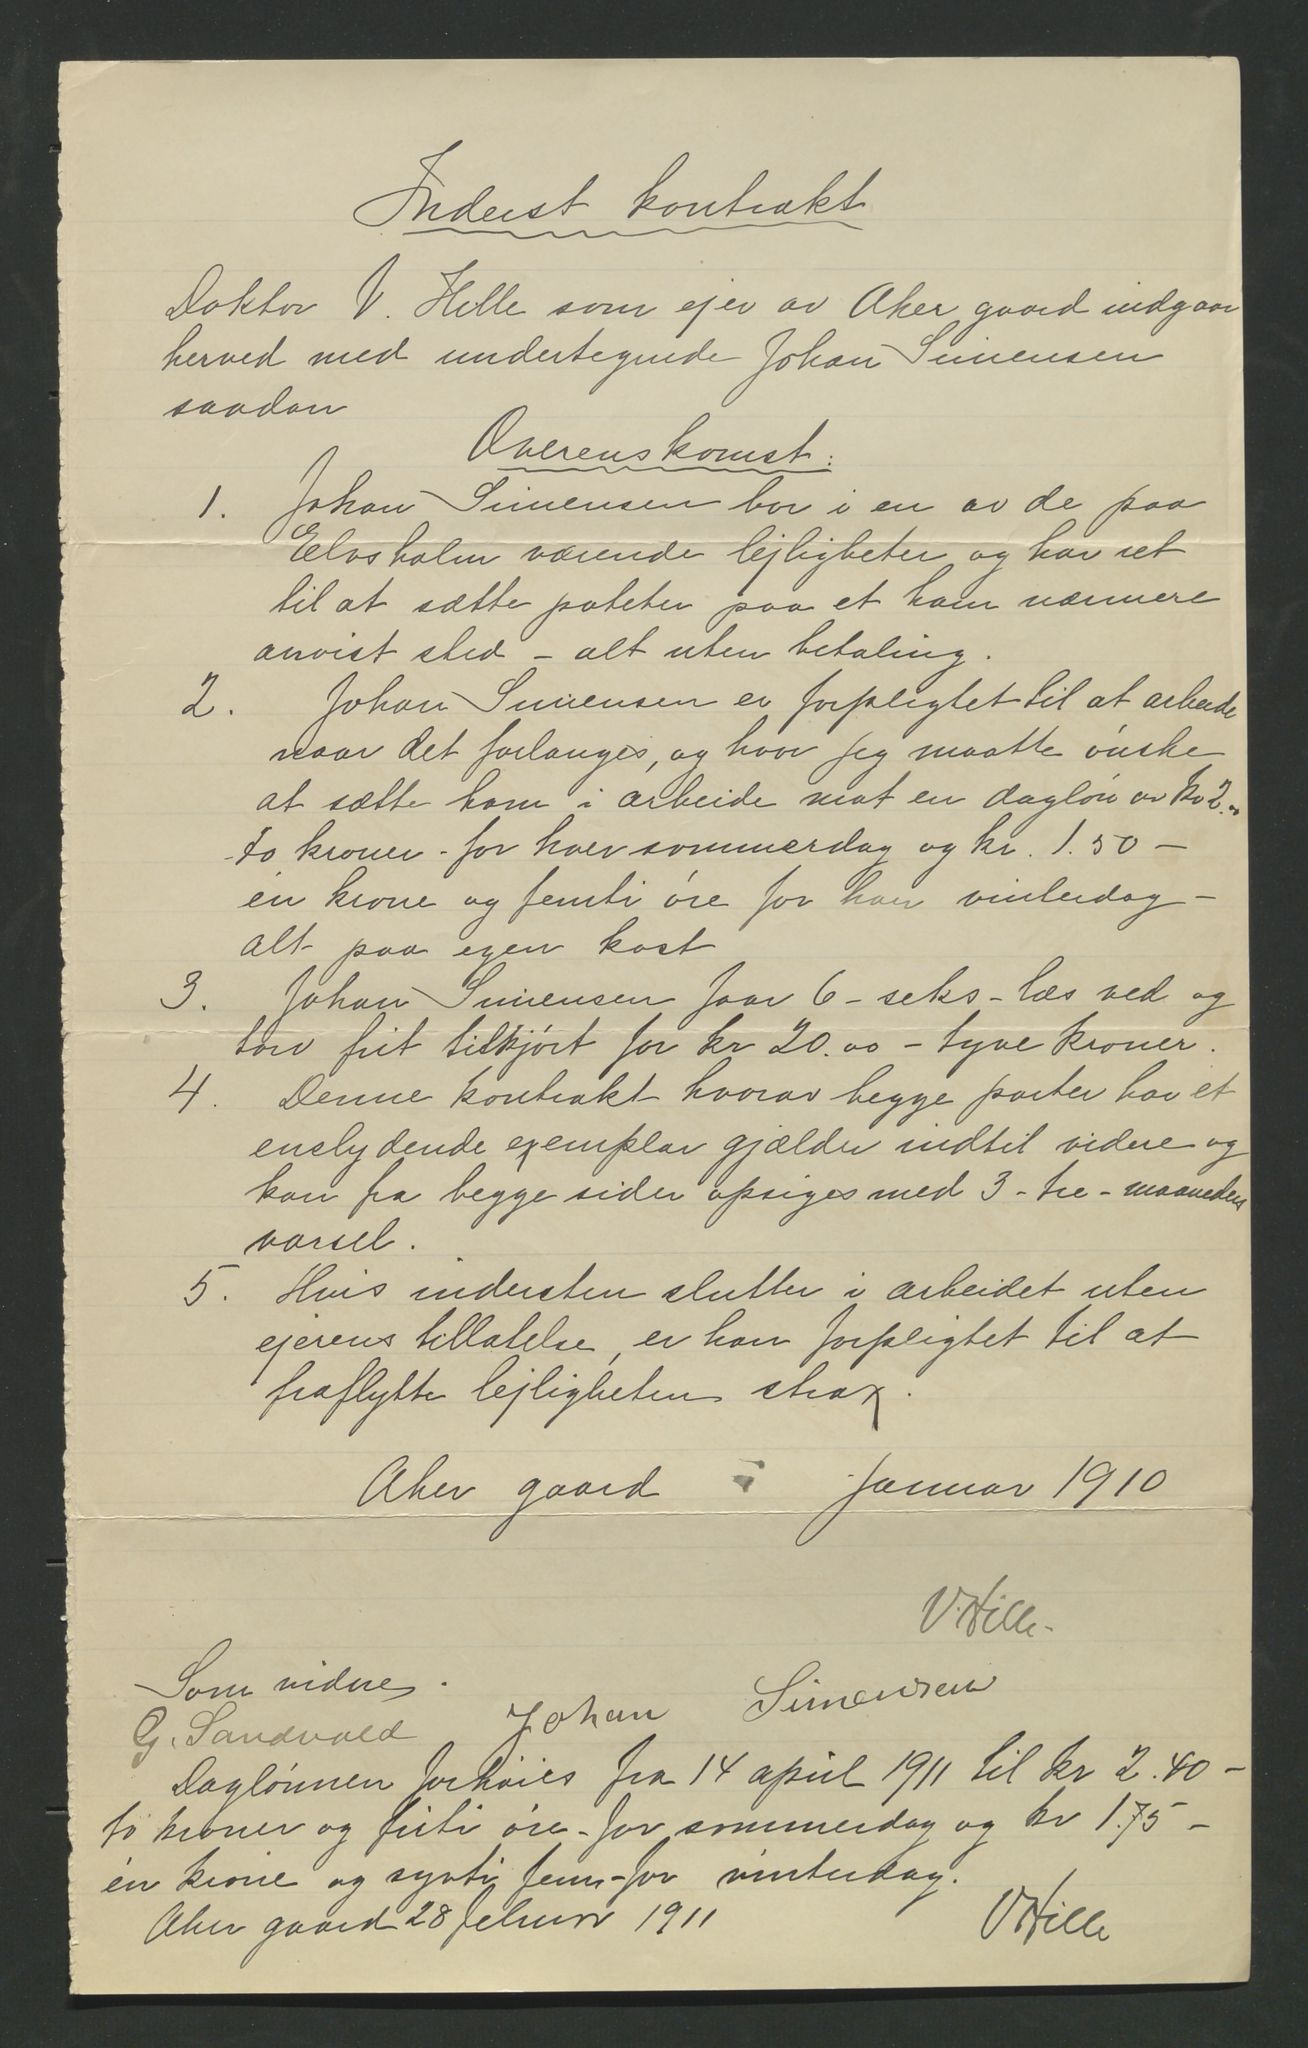 Inderst kontrakt
Doktor V. Hille som ejer av Aker gaard indgaar
herved med undertegnede Johan Simensen
saadan
Overenskomst:
1. Johan Simensen bor i en av de paa
Elvsholm værende lejligheter og har ret
til at sætte poteter paa et ham nærmere
anvist sted – alt uten betaling.
2. Johan Simensen er forpligtet til at arbeide
naar det forlanges, og hvor jeg maatte ønske
at sætte ham i arbeide mot en dagløn av kr 2.00
to kroner - for hver sommerdag og kr. 1.50 –
én krone og femti øre for hver vinterdag –
alt paa egen kost
3. Johan Simensen faar 6 – seks – læs ved og
torv frit tilkjørt for kr 20.00 – tyve kroner.
4. Denne kontrakt hvorav begge parter har et
enslydende exemplar gjælder indtil videre og
kan fra begge sider opsiges med 3 - tre - maaneders
varsel.
5. Hvis indersten slutter i arbeidet uten
ejerens tillatelse, er han forpligtet til at
fraflytte lejligheten strax.
Aker gaard januar 1910
V. Hille.
Som vidne.
G. Sandvold Johan Simensen
Daglønnen forhøies fra 14 april 1911 til kr 2.40 –
to kroner og firti øre - for sommerdag og kr 1.75 –
én krone og sytti fem - for vinterdag.
Aker gaard 28 februar 1911 V Hille